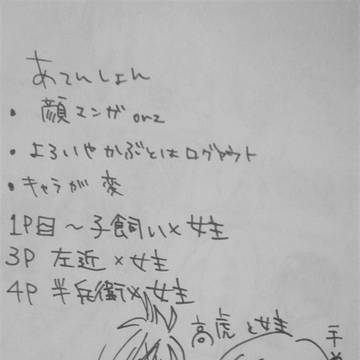 あてんしょん
・ 顔マンガorz
・よろいやかぶとはログアウト
・キャラが変
1P目〜子飼い×女主
3P 左近×女主
4P 半兵衛×女主
高虎と女主